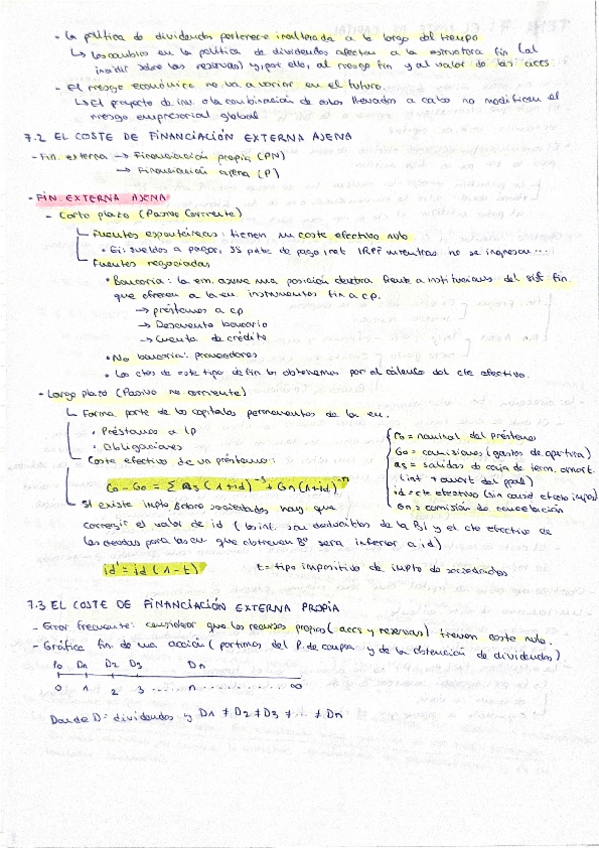 - La política de dividendos pertenece inalterada a lo largo del tiempo
↳ los cambios en la política de dividendos afectan a la estructura fin (al
incidir sobre las reservas) y, por ello, al riesgo fin y al valor de las accs
- El riesgo económico no va a variar en el futuro
↳ El proyecto de inv. o la combinación de estos llevados a cabo no modifican el
riesgo empresarial global
7.2 EL COSTE DE FINANCIACIÓN EXTERNA AJENA
- Fin. externa → Financiación propia (PN)
→ Financiación ajena (P)
- FIN. EXTERNA AJENA
- Corto plazo (Pasivo Corriente)
Fuentes espontáneas: tienen un coste efectivo nulo
• Ej: sueldos a pagar, SS pdte de pago, ret IRPF mientras no se ingresan...
Fuentes negociadas
• Bancaria: la em. asume una posición deudora frente a instituciones del sist fin.
que ofrecen a la em. instrumentos fin a cp.
→ préstamos a cp
→ Descuento bancario
→ Cuenta de crédito
• No bancaria: proveedores
• Los ctes de este tipo de fin los obtenemos por el cálculo del cte efectivo.
- Largo plazo (Pasivo no corriente)
Forma parte de los capitales permanentes de la em.
• Préstamos a lp
• Obligaciones
Coste efectivo de un préstamo:
Co - Go = Σ as (1+id)^-s + Gn (1+id)^-n
Co = nominal del préstamo
Go = comisiones (gastos de apertura)
as = salidas de caja de term. amort.
(int + amort del ppal)
id = cte efectivo (sin causa efecto impos)
Gn = comisión de cancelación
Si existe impto sobre sociedades hay que
corregir el valor de id (los int. son deducibles de la BI y el cte efectivo de
las deudas para las em que obtienen Bº será inferior a id)
id' = id (1-t) t = tipo impositivo de impto de sociedades
7.3 EL COSTE DE FINANCIACIÓN EXTERNA PROPIA
- Error frecuente: considerar que los recursos propios (accs y reservas) tienen coste nulo.
- Gráfica fin. de una acción (partimos del P. de compra y de la obtención de dividendos)
Po D1 D2 D3 Dn
0 1 2 3 ... n ... ∞
Donde D = dividendos y D1 ≠ D2 ≠ D3 ≠ ... ≠ Dn